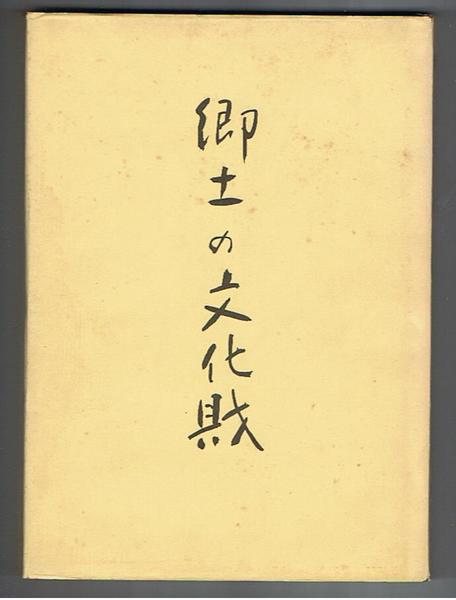 郷土の文化財